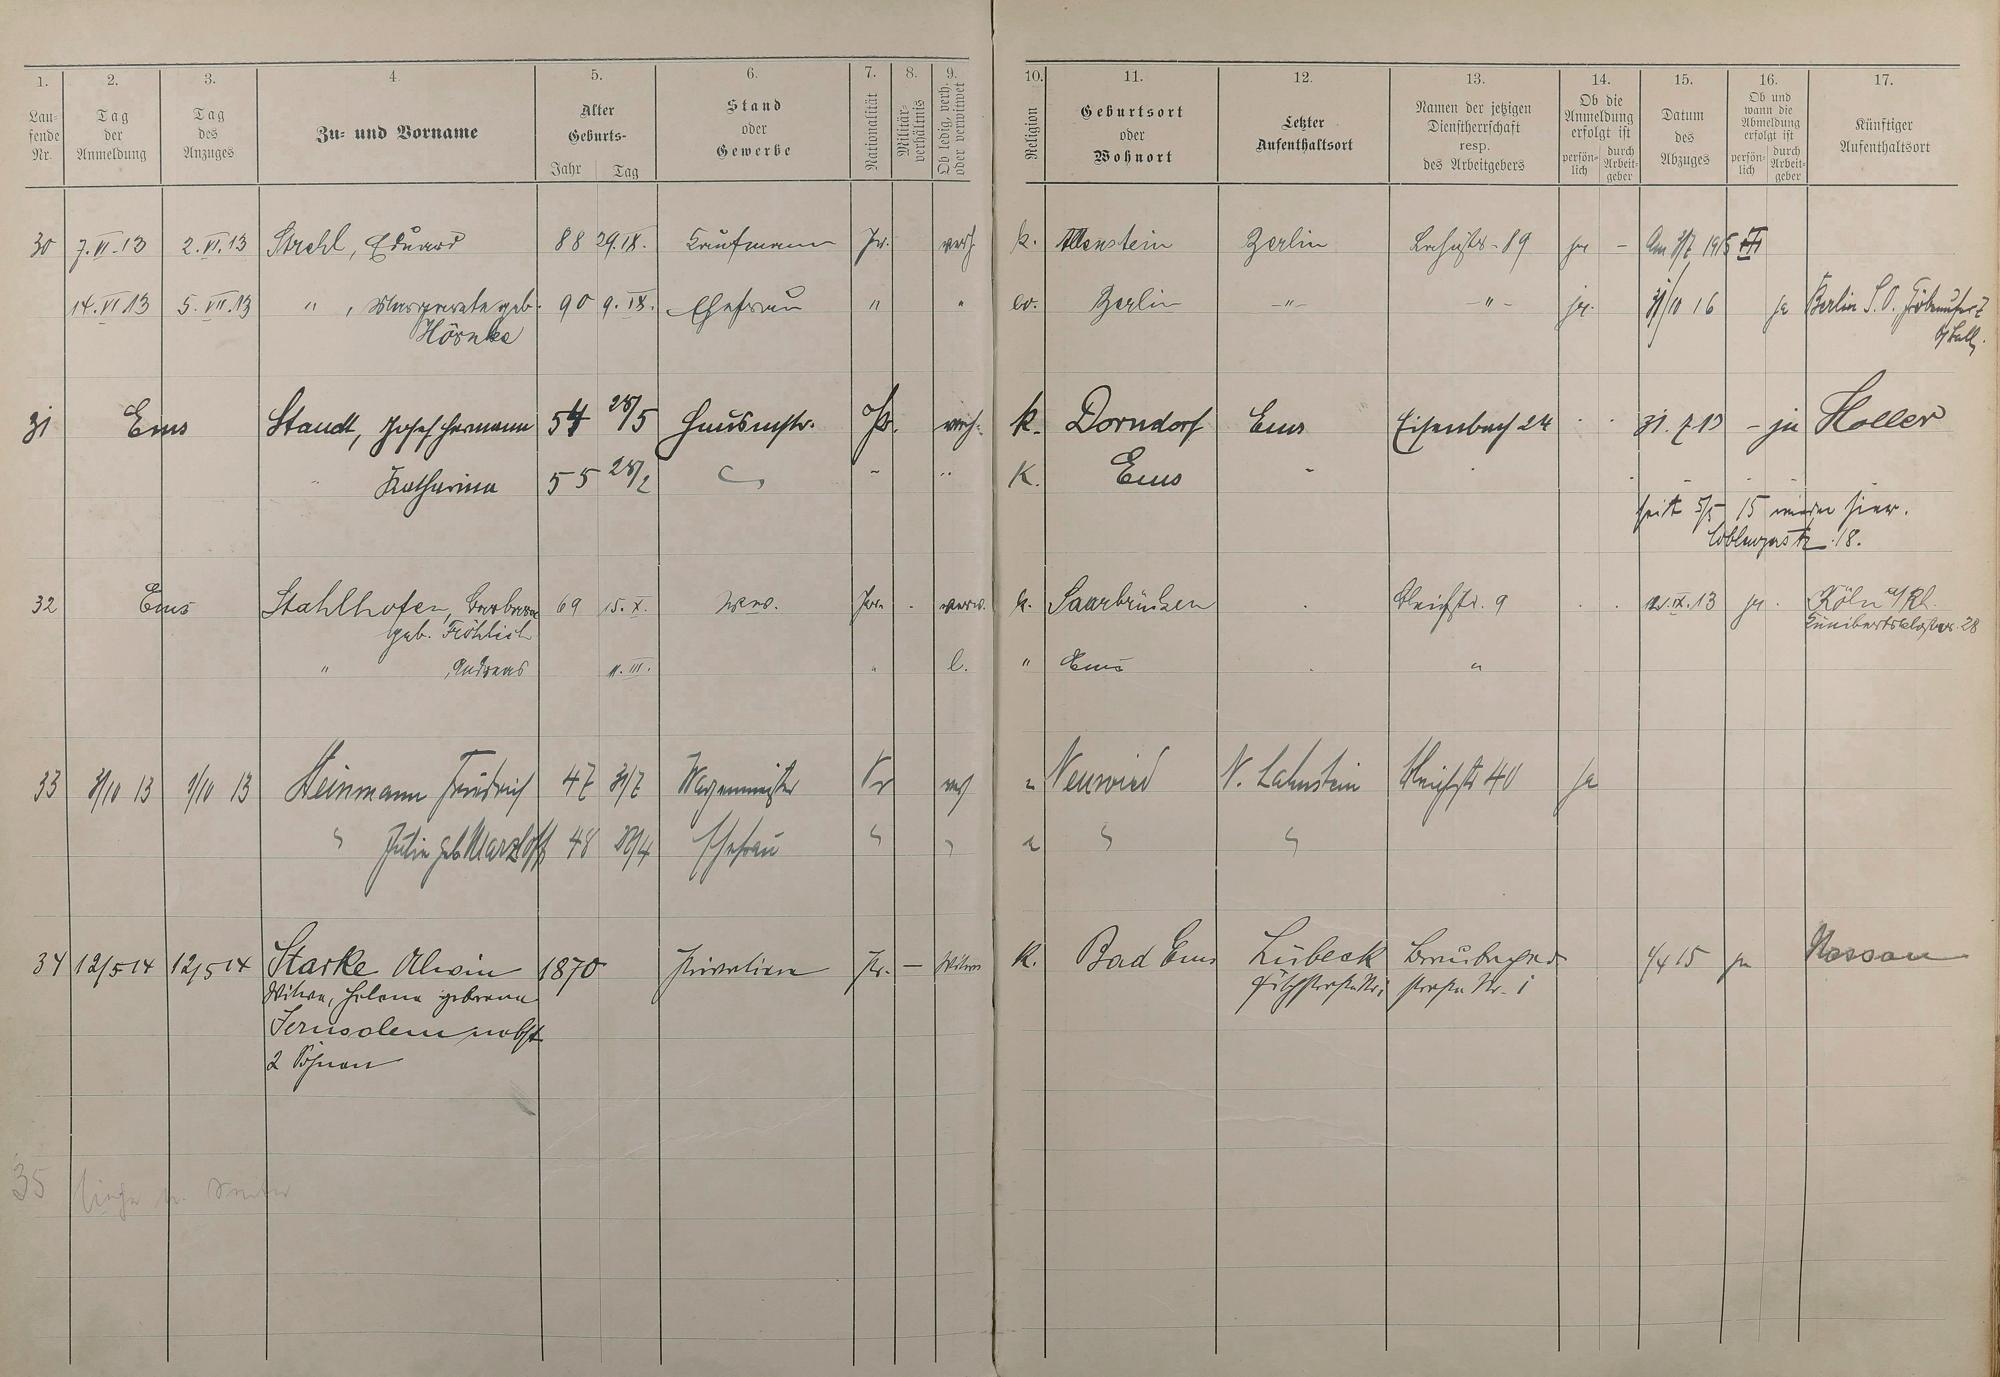 1. 2. 3. 4 5. 6. 7. 8. 9. 10. 11. 12. 13. 14. 15. 16. 17.
Lau-
fende
Nr.
Tag
der
Anmeldung
Tag
des
Anzuges
Zu- und Vorname
Alter
Geburts-
Jahr Tag
Stand
oder
Gewerbe
Nationalität
Militär-
verhältnis
Ob ledig, verh.
oder verwitwet
Religion
Geburtsort
oder
Wohnort
Letzter
Aufenthaltsort
Namen der jetzigen
Dienstherrschaft
resp.
des Arbeitgebers
Ob die
Anmeldung
erfolgt ist
persön-
lich
durch
Arbeit-
geber
Datum
des
Abzuges
Ob und
wann die
Abmeldung
erfolgt ist
persön-
lich
durch
Arbeit-
geber
Künftiger
Aufenthaltsort
30 7.VI.13 2.VI.13 Strehl, Eduard 88 29.IX. Kaufmann Pr. verh. k. Allenstein Berlin 89 ja -
14.VI 13 5.VII.13 " , Margarete geb. 90 9.IX. Ehefrau " " ev. Berlin -"- -"- ja. 31/10 16 ja Berlin S.O.
Hörnke
31 Ems Staudt, Josef Hermann 54 28/5 Hausmstr. Pr. verh. k. Dorndorf Ems Eisenbach 24 31.7.13 - ja Holler
" Katharina 55 28/2 " " K. Ems "
seit 5/5 15 wieder hier.
Coblenzerstr. 18.
32 Ems Stahlhofen, Barbara 69 15.X. Pr. verw. k. Saarbrücken Bleichstr. 9 IX.13 ja. Köln a/Rh.
geb. Fröhlich Kunibertsklostr. 28
" Andreas 11.III. " l. " Ems "
33 3/10 13 1/10 13 Steinmann Friedrich 47 31/7 Wagenmeister Pr verh Neuwied N. Lahnstein Bleichstr 40 ja
" Julie geb Marzloff 48 28/4 Ehefrau " " " "
34 12/5 14 12/5 14 Starke Alwin 1870 Privatiere Pr. - Witwe K. Bad Ems Lübeck Braubacher 1/4 15 ja Nassau
Witwe, Helene geborene straße Nr. 1
Jerusalem nebst
2 Söhnen
35